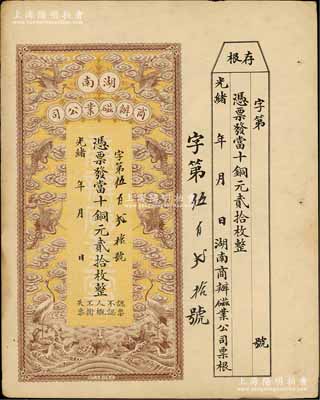 上海陽明拍賣
存根
字第 號
憑票發當十銅元貳拾枚整
光緒 年 月 日湖南商辦磁業公司票根
字第伍百貳拾號
湖南
商辦磁業公司
字第伍百貳拾號
憑票發當十銅元貳拾枚整
光緒 年 月 日
認票
不認人
概不掛
失票